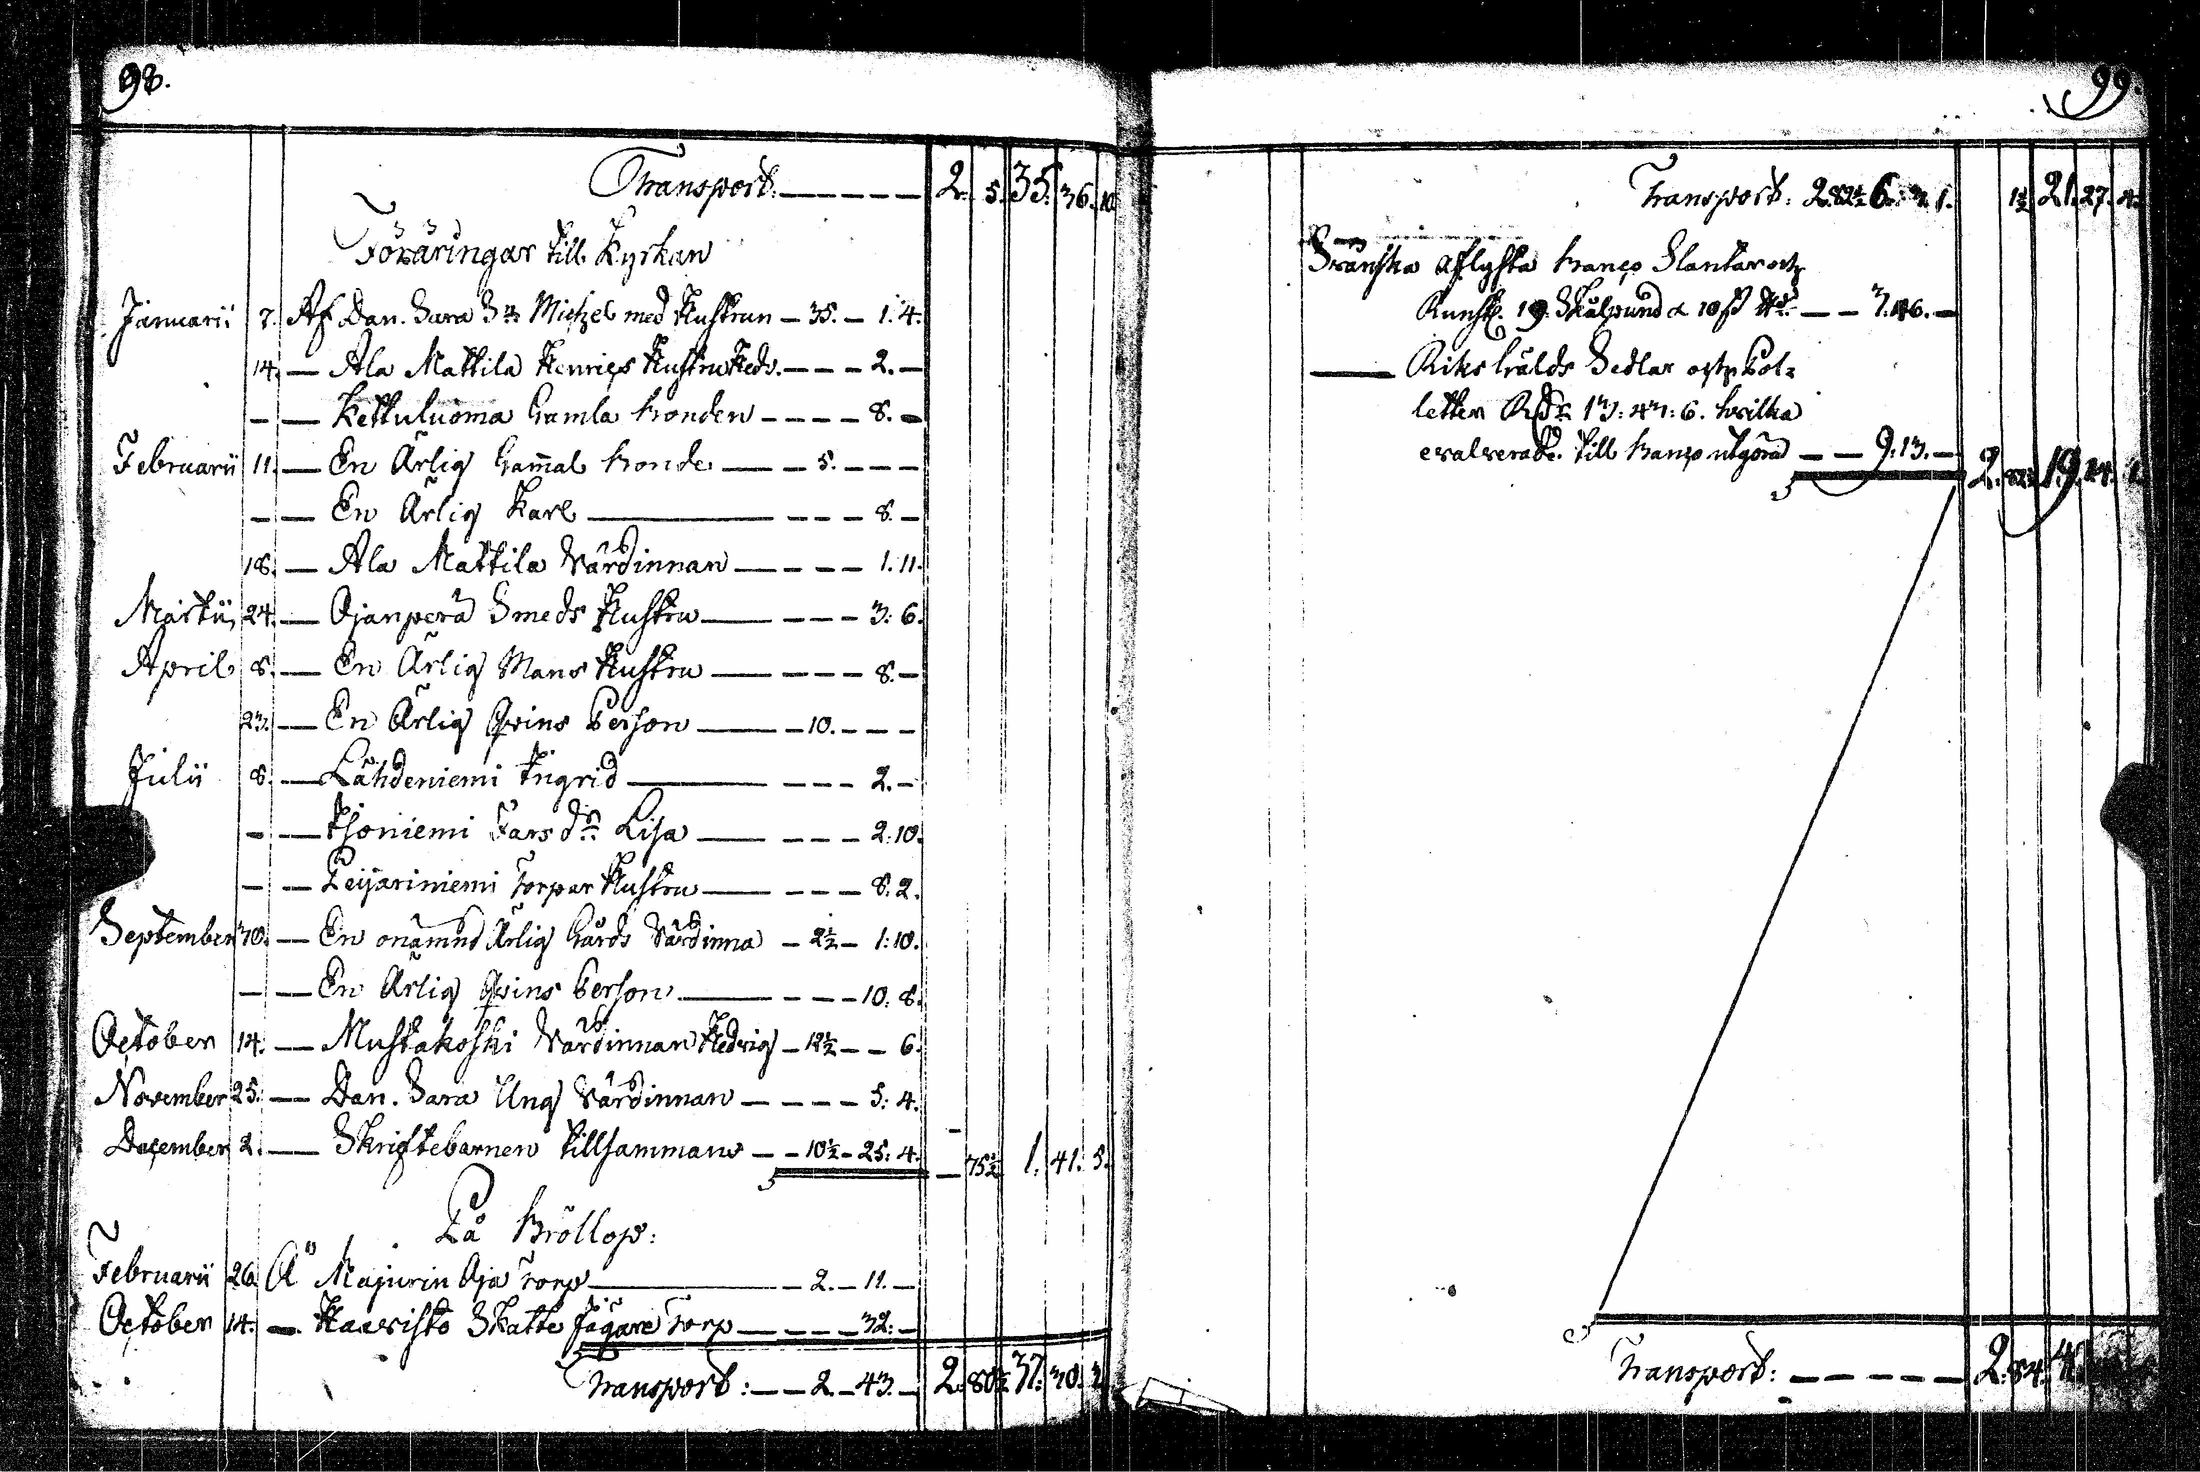 98.
Transport: — — — — — 2. 5. 35. 36. 10.
Föräringar till Kyrkan
Januarii 7. Af Dan. Sara Sn Michel med Hustrun — 35. — 1. 4.
14. — Ala Mattila Henrics Hustru Hedv. — — — 2. —
— — Kettuluoma Gamla bonden — — — — 8. —
Februarii 11. — En Ärlig Gam̄al bonde — — 5. — — —
— — En Ärlig Karl — — — — 8. —
18. — Ala Mattila Värdinnan — — — — 1. 11.
Martii 24. — Ojanperä Smeds Hustru — — — — 3: 6.
April 8. — En Ärlig Mans Hustru — — — — 8. —
23. — En Ärlig Qvins Person — — 10. — — —
Julii 8. — Lähdeniemi Ingrid — — — — 2. —
— — Isoniemi Fars dr Lisa — — — — 2. 10.
— — Peijariniemi Torpar Hustru — — — — 8. 2.
September 30. — En onämnd Ärlig Gårds Värdinna — 2½ — 1: 10.
— — En Ärlig Qvins Person — — — — 10: 8.
October 14. — Mustakoski Värdinnan Hedvig — 12½ — — 6.
November 25. — Dan. Sara Ung Värdinnan — — — — 5: 4.
December 2. — Skriftebarnen tillsammans — — 10½ — 25: 4. — 75½ 1. 41. 5.
På Bröllop:
Februarii 26. Å Majurin Oja Torp — — 2. — 11. —
October 14. — Haavisto Skatte Jägare Torp — — — — 32: —
Transport: — — 2. — 43. — 2. 80½ 37. 30. 3.
99.
Transport: 2. 82½ 6. 3. 1. 1½ 21. 27. 4.
Svänska aflysta banco Slantar och
Runst. 19. Skålpund à 10 ß — — 3. 46. —
— Riks Gälds Sedlar och Pol-
letter Rdr 13: 43: 6. hvilka
evalverade till banco utgöra — — 9. 13. — 2. 82½ 19. 14. 1.
Transport: — — — — — 2. 84.